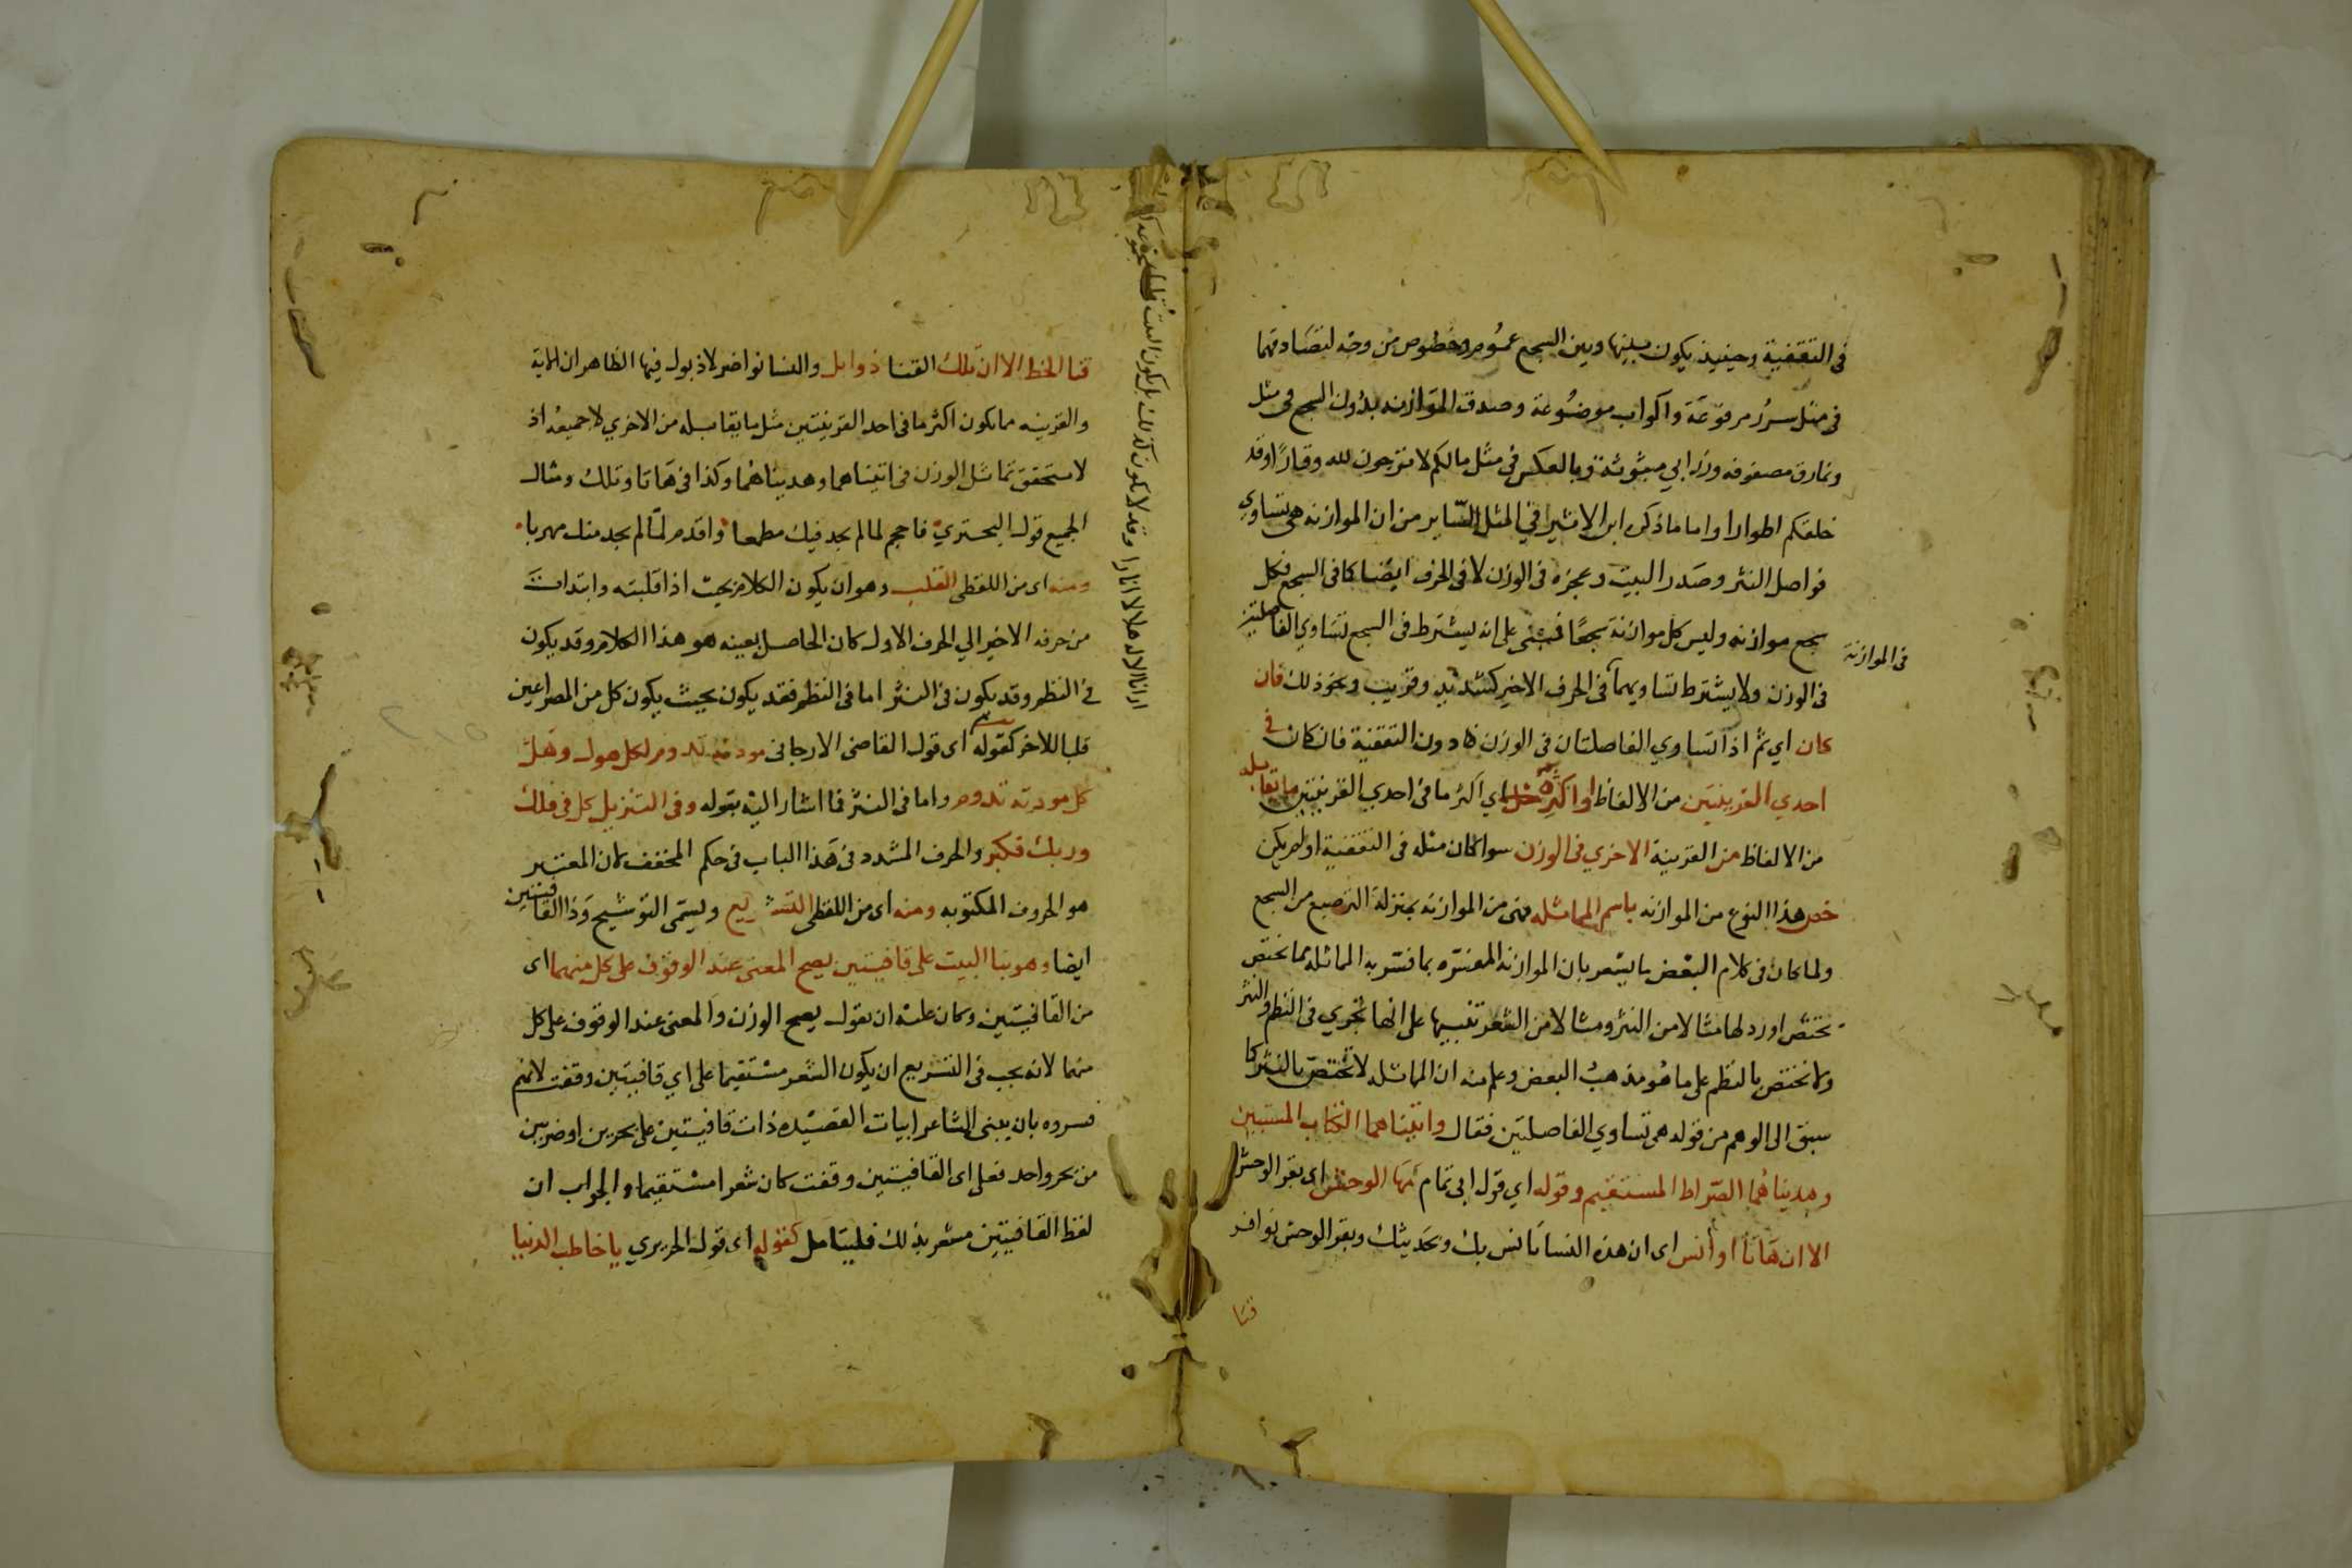 في التقفية وحينيذ يكون بينها وبين السجع عموم وخصوص من وجه لتصادقهما
في مثل سرر مرفوعة واكواب موضوعة وصدق الموازنه بدون السجع في مثل
ونمارق مصفوفه وزرابي مبثوثة وبالعكس في مثل مالكم لا ترجون لله وقارا وقد
خلقكم اطوارا واما ما ذكره ابن الاثير في المثل الساير من ان الموازنه هي تساوي
فواصل النثر وصدر البيت وعجزه في الوزن لا في الحرف ايضا كما في السجع فكل
سجع موازنه وليس كل موازنة سجعا فمبني على انه يشترط في السجع تساوي الفاصلتين
في الموازنة
في الوزن ولا يشترط تساويهما في الحرف الاخير كشديد وقريب ونحو ذلك فان
كان اي ثم اذا تساوي الفاصلتان في الوزن دون التقفية فان كان في
احدي القرينتين من الالفاظ او اكثره اي اكثر ما في احدي القرينتين ما يقابله
من الالفاظ من القرينة الاخري في الوزن سوا كان مثله في التقفية او لم يكن
خص هذا النوع من الموازنه باسم المماثله فهي من الموازنه بمنزلة الترصيع من السجع
ولما كان في كلام البعض ما يشعر بان الموازنه المفسره بما فسر به المماثله مما تختص
تختص اورد لها مثالا من النثر ومثالا من الشعر تنبيها على انها تجري في النظم والنثر
ولا تختص بالنظم على ما هو مذهب البعض وعلم منه ان المماثله لا تختص بالنثر كما
سبق الى الوهم من قوله هي تساوي الفاصلتين فقال واتيناهما الكتاب المستبين
وهديناهما الصراط المستقيم وقوله اي قول ابي تمام مها الوحش اي بقر الوحش
الا ان هاتا اوانس اى ان هذه النسا تانس بك وتحديثك وبقر الوحش نوافر
قنا
قنا الخط الا ان تلك القنا ذوابل والنسا نواضر لا ذبول فيها الظاهر ان الاية
والقرينه مما يكون اكثر ما في احد القرينتين مثل ما يقابله من الاخري لا جميعه اذ
لا يتحقق تماثل الوزن في اتيناهما وهديناهما وكذا في هاتا وتلك ومثال
الجميع قول البحتري فاحجم لما لم يجد فيك مطمعا واقدم لما لم يجد منك مهربا
ومنه اى من اللفظى القلب وهو ان يكون الكلام بحيث اذا قلبته وابتدات
من حرفه الاخير الي الحرف الاول كان الحاصل بعينه هو هذا الكلام وقد يكون
في النظم وقد يكون في النثر اما في النظم فقد يكون بحيث يكون كل من المصراعين
قلبا للاخر كقوله اى قول القاضى الارجانى مودته تدوم لكل هول وهل
كل مودته تدوم واما في النثر فما اشار اليه بقوله وفى التنزيل كل في فلك
وربك فكبر والحرف المشدد في هذا الباب في حكم المخفف لان المعتبر
هو الحروف المكتوبه ومنه اى من اللفظى التشريع ويسمى التوشيح وذا القافيتين
ايضا وهو بنا البيت على قافيتين يصح المعنى عند الوقوف على كل منهما اى
من القافيتين وكان عليه ان يقول يصح الوزن والمعنى عند الوقوف على كل
منهما لانه يجب في التشريع ان يكون الشعر مستقيما على اي قافيتين وقفت لانهم
فسروه بان يبنى الشاعر ابيات القصيده ذات قافيتين على بحرين او ضربين
من بحر واحد فعلى اى القافيتين وقفت كان شعرا مستقيما والجواب ان
لفظ القافيتين مشعر بذلك فليتامل كقوله اى قول الحريري يا خاطب الدنيا
ارانا الاله هلالا انارا وقد لا يكون كذلك بل يكون البيت